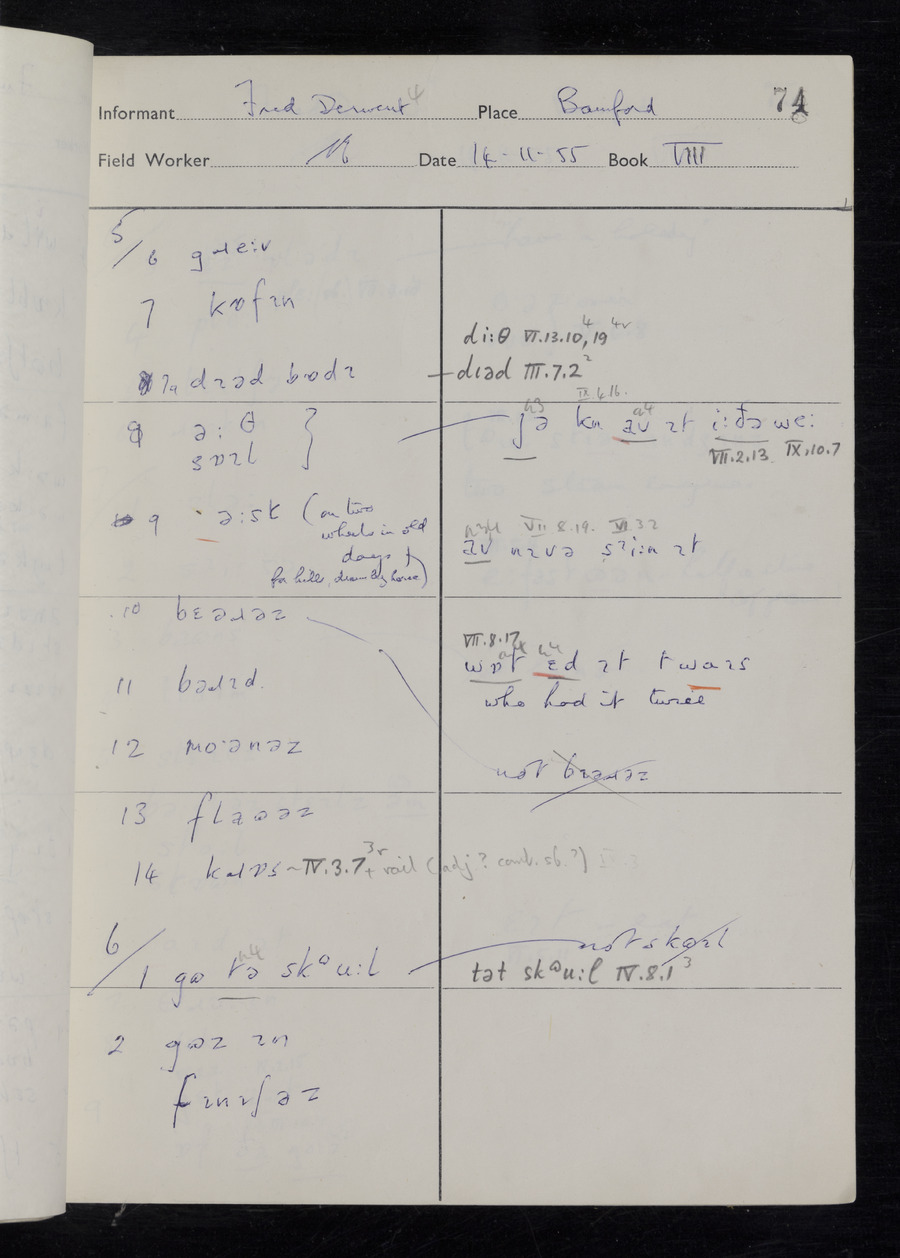 Informant Fred Derwent 4 Place Bamford 74
Field Worker Date 14-11-55 Book VIII
5/6 gɹeːv
7 kɒfɪn
7a dɪəd bɒdɪ
8 əːθ
sɒɪl
9 əːsk (on two
wheels in old
days
for hills, drawn by horse)
10 bɛəɹəz
11 bəɹɪd
12 moˑənəz
13 flaʊəz
14 kɹɒs ~ IV.3.7 3r + rail (adj? comb. sb.?)
6/1 gʊ tə skᶷuːl
2 gʊz ɪn
fɪnɪʃəz
diːθ VI.13.10,⁴ 19⁴ʳ
dɪəd III.7.2²
IX.4.16.
n3 n4
jə kn av ɪt iːðə weː
VII.2.13 IX.10.7
VII.8.19. VI.32
av nɪvə sɪiːn ɪt
VII.8.17
wɒt ɛd ɪt twaɪs
who had it twice
not bɪəɹəz
not skʊɪl
tət skᶷuːl IV.8.1³